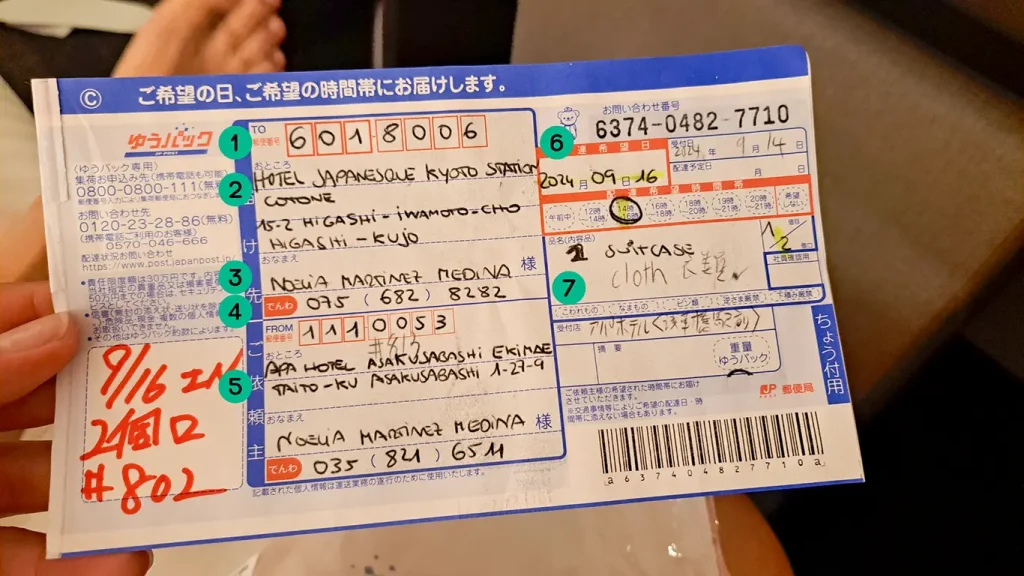 © ご希望の日、ご希望の時間帯にお届けします。
ゆうパック
(ゆうパック専用)
集荷お申込み先(携帯電話も可能)
0800-0800-111(無料
お問い合わせ先
0120-23-28-86(無料)
(携帯電話ご利用のお客様)
0570-046-666
配達状況お問い合わせ
https://www.post.japanpost.jp/
9/16
2個口
#802
1
TO
郵便番号
601-8006
おところ
2
HOTEL JAPANESQUE KYOTO STATION
COTONE
15-2 HIGASHI-IWAMOTO-CHO
HIGASHI-KUJO
お届け先
おなまえ
3
NOELIA MARTINEZ MEDINA 様
4
でんわ 075 (682) 8282
FROM
郵便番号
1110053
おところ
5
APA HOTEL ASAKUSABASHI EKIMAE
TAITO-KU ASAKUSABASHI 1-27-9
ご依頼主
おなまえ
NOELIA MARTINEZ MEDINA 様
でんわ 035 (821) 6511
記載された個人情報は運送業務の遂行のために使用いたします。
お問い合わせ番号
6374-0482-7710
6
配達希望日
2024年 09月 16
受付日
2024年 9月 14日
配達予定日
月 日
配達希望時間帯
午前中
12時
~14時
14時
~16時
16時
~18時
18時
~20時
19時
~21時
20時
~21時
希望
なし
品名(内容品)
SUITCASE
cloth
7
1/2
社員確認用
こわれもの
なまもの
ビン類
逆さま厳禁
積み厳禁
受付店
摘要
重量
ゆうパック
ご依頼主様の希望された時間帯にお届け
させていただきます。
※交通事情等によりご希望の配達日・時
間帯に添えない場合もあります。
郵便局
ちょう付用
a637404827710a